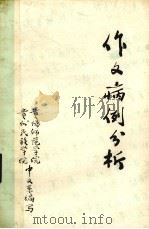 作文病例分析
贵阳师范学院
贵州民族学院
中文系编写